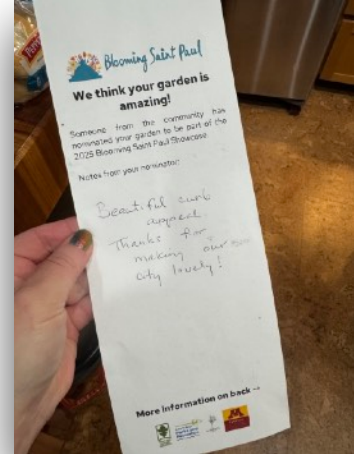 Blooming Saint Paul
We think your garden is
amazing!
Someone from the community has
nominated your garden to be part of the
2025 Blooming Saint Paul Showcase.
Notes from your nominator:
Beautiful curb
appeal.
Thanks for
making our
city lovely!
More information on back →